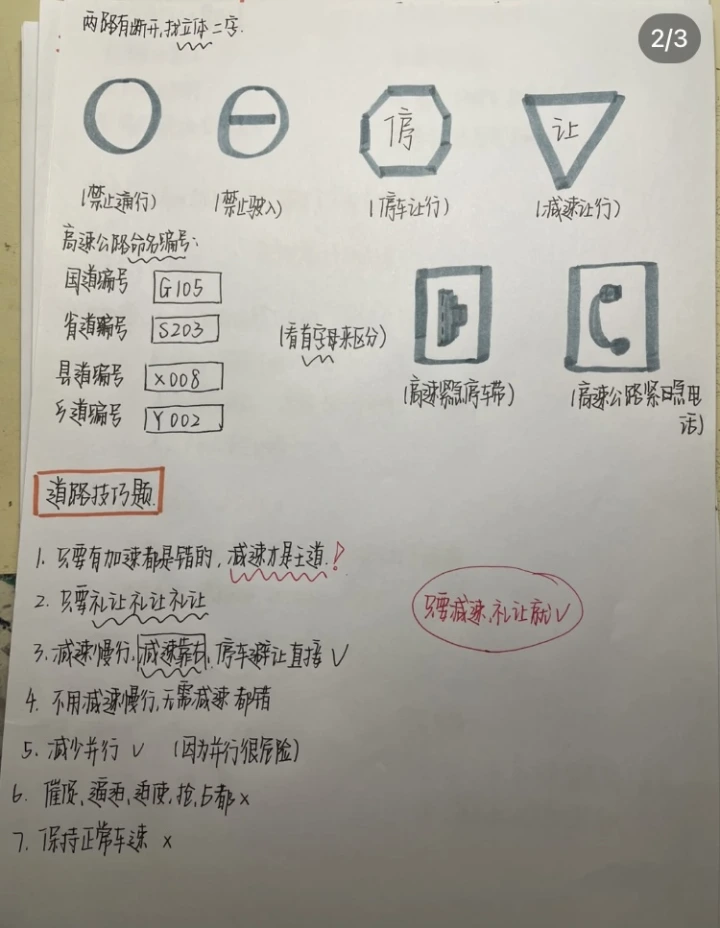 2/3
两路有断开,找立体二字.
停
让
(禁止通行)
(禁止驶入)
(停车让行)
(减速让行)
高速公路命名编号:
国道编号 G105
省道编号 S203
县道编号 X008
乡道编号 Y002
(看首字母来区分)
(高速紧急停车带)
(高速公路紧急电
话)
道路技巧题.
1. 只要有加速都是错的,减速才是王道.!
2. 只要礼让礼让礼让
3. 减速慢行,减速靠右,停车避让直接√
4. 不用减速慢行,无需减速 都错
5. 减少并行 √ (因为并行很危险)
6. 催促,逼迫,迫使,抢,占都×
7. 保持正常车速 ×
只要减速,礼让就√